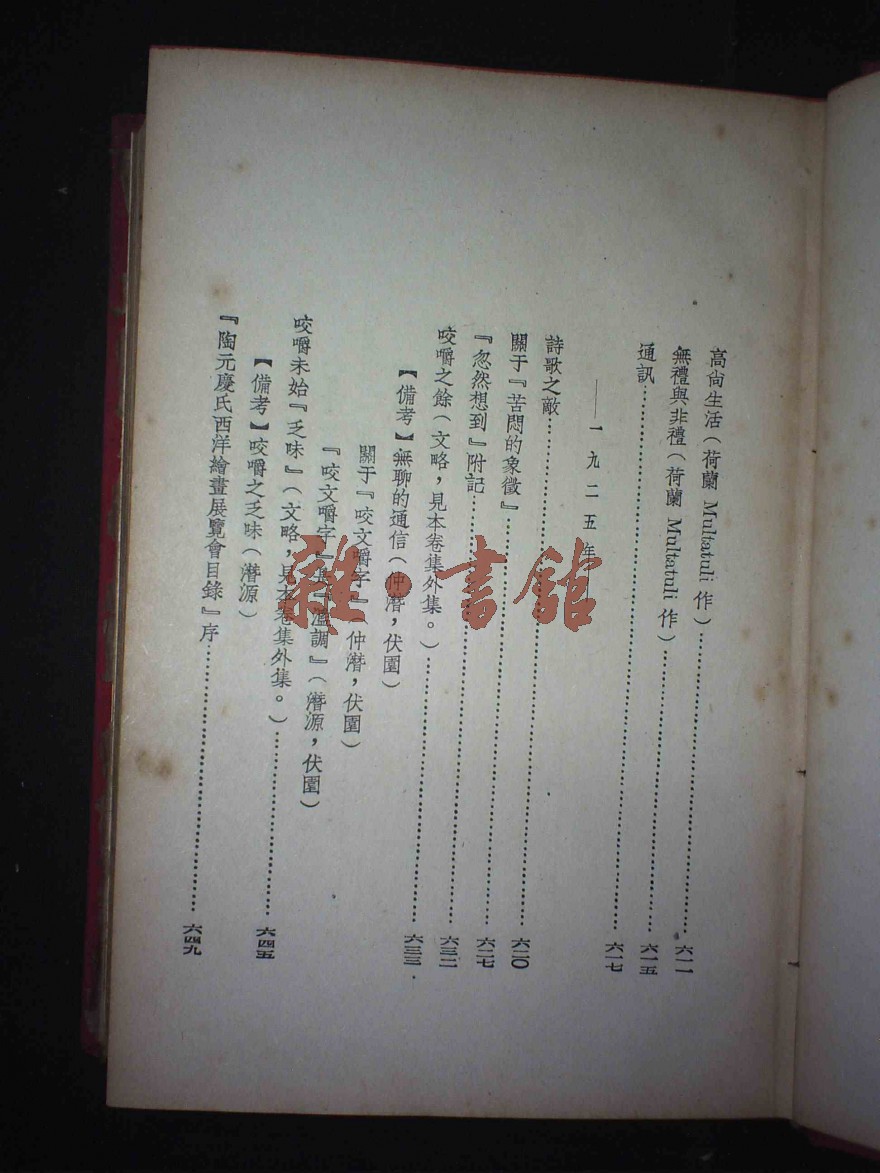 高尚生活（荷蘭 Multatuli 作）……六一一
無禮與非禮（荷蘭 Multatuli 作）……六一五
通訊……六一七
——一九二五年——
詩歌之敵……六二〇
關于『苦悶的象徵』……六二七
『忽然想到』附記……六三二
咬嚼之餘（文略，見本卷集外集。）……六三三
【備考】無聊的通信（仲潛，伏園）
關于『咬文嚼字』（仲潛，伏園）
『咬文嚼字』是『濫調』（潛源，伏園）
咬嚼未始『乏味』（文略，見本卷集外集。）……六四五
【備考】咬嚼之乏味（潛源）
『陶元慶氏西洋繪畫展覽會目錄』序……六四九
雜·書館